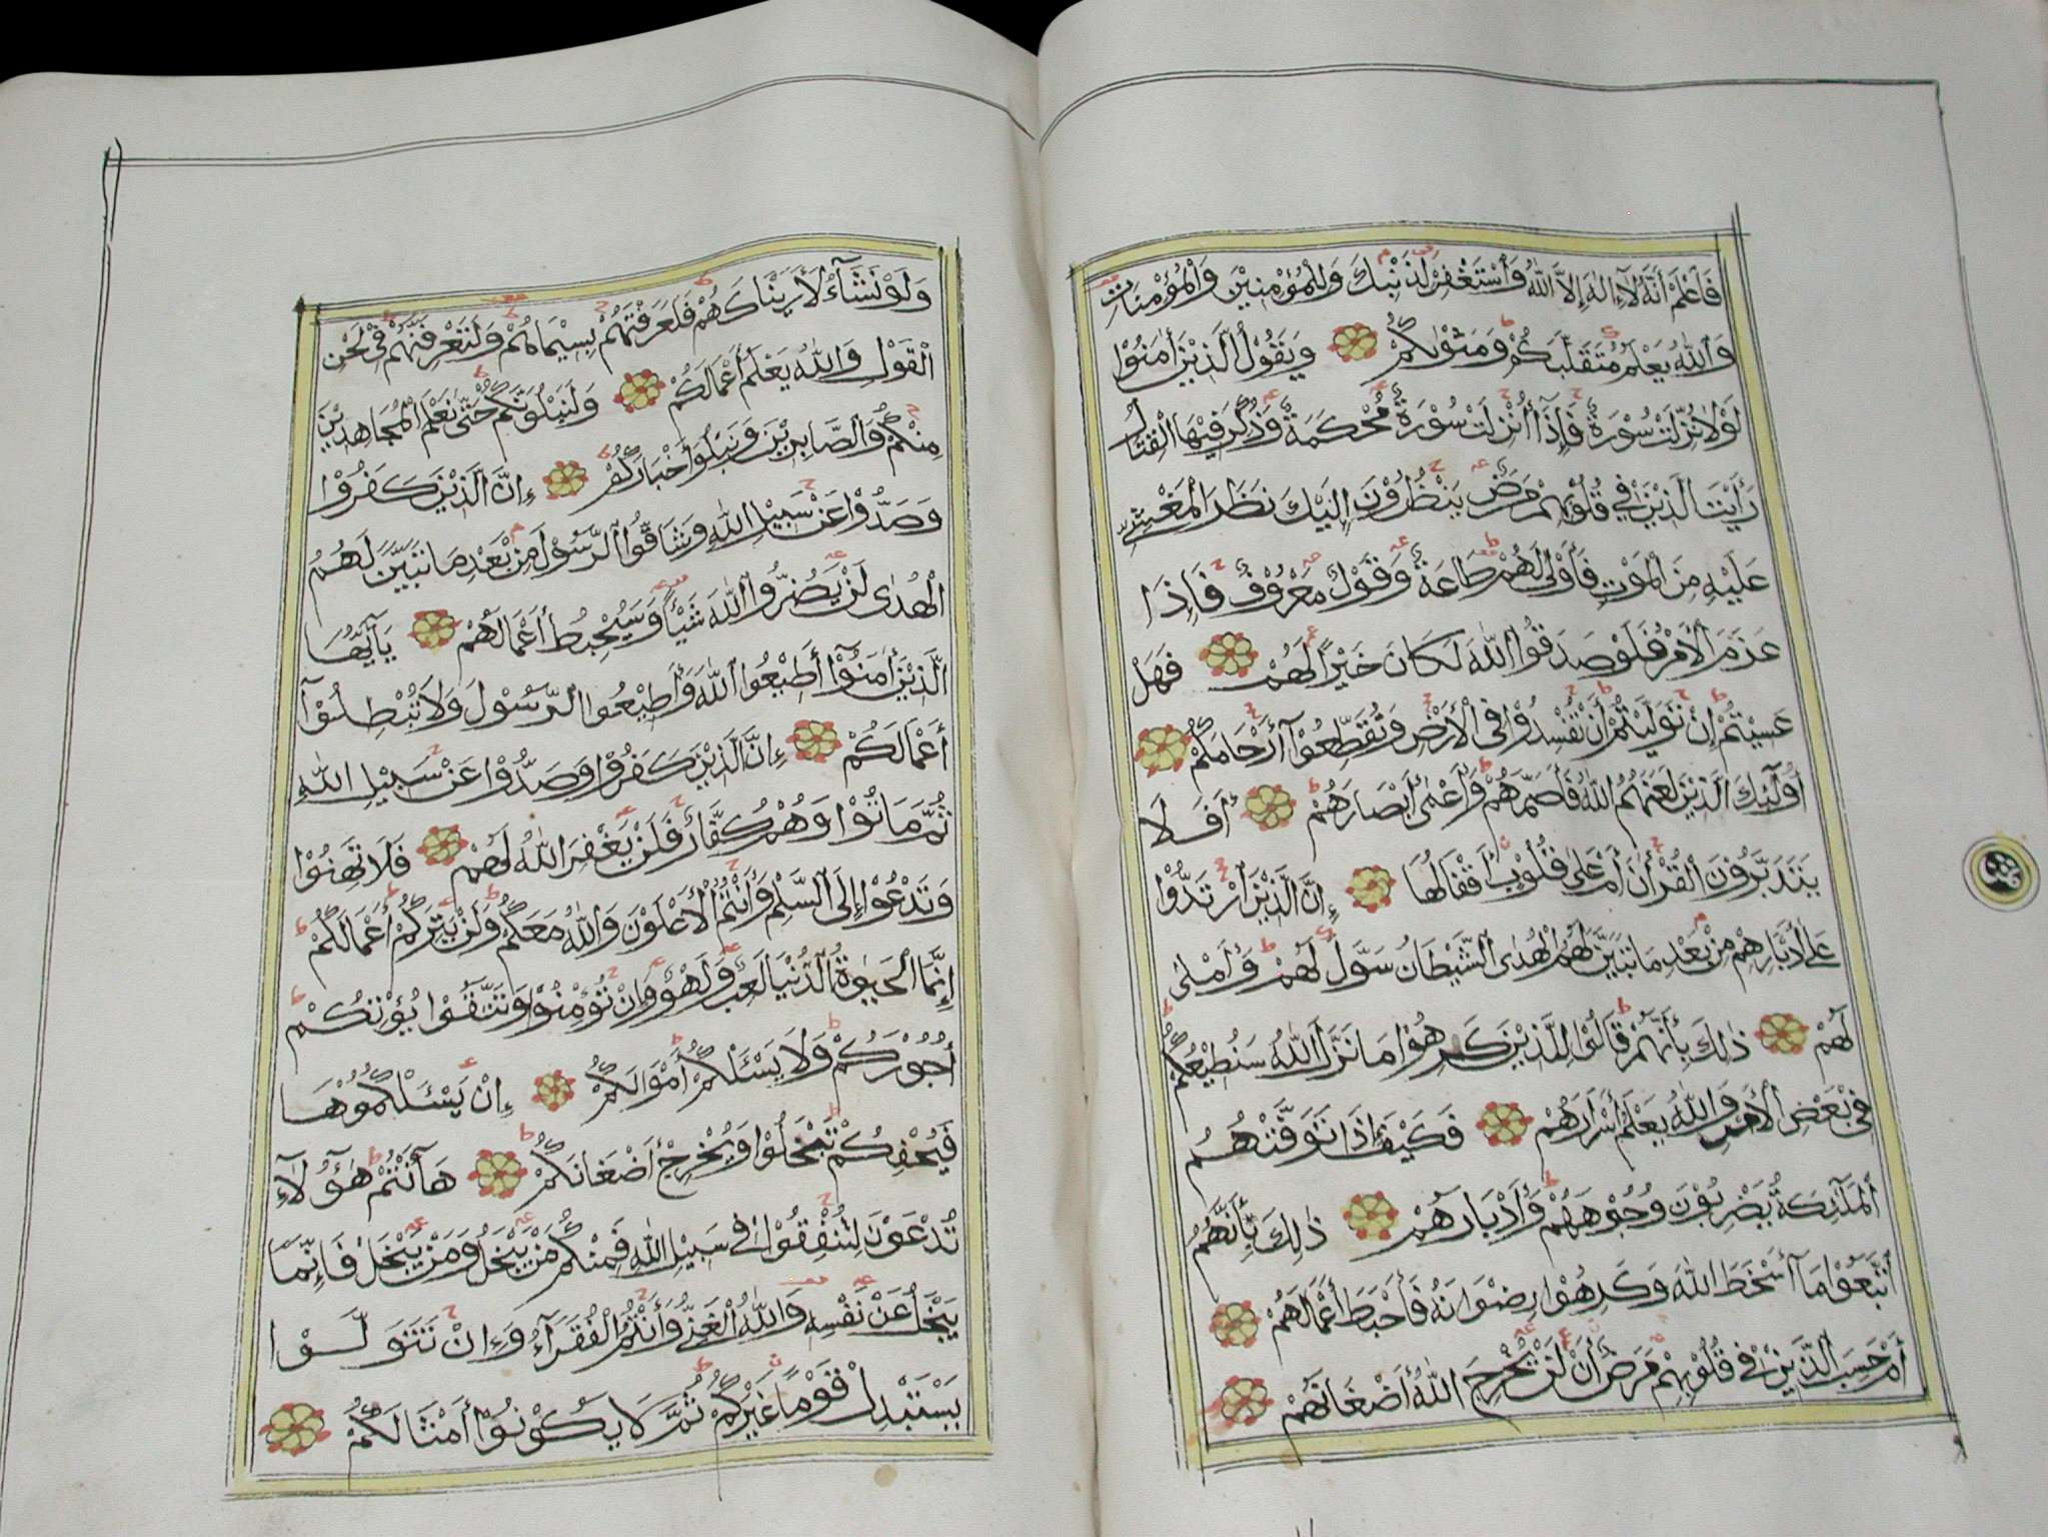 فَاعْلَمْ أَنَّهُ لَآ إِلٰهَ إِلَّا اللّٰهُ وَاسْتَغْفِرْ لِذَنْبِكَ وَلِلْمُؤْمِنِيْنَ وَالْمُؤْمِنَاتِ
وَاللّٰهُ يَعْلَمُ مُتَقَلَّبَكُمْ وَمَثْوٰىكُمْ وَيَقُوْلُ الَّذِيْنَ اٰمَنُوْا
لَوْلَا نُزِّلَتْ سُوْرَةٌ فَإِذَآ أُنْزِلَتْ سُوْرَةٌ مُحْكَمَةٌ وَذُكِرَ فِيْهَا الْقِتَالُ
رَأَيْتَ الَّذِيْنَ فِيْ قُلُوْبِهِمْ مَرَضٌ يَنْظُرُوْنَ إِلَيْكَ نَظَرَ الْمَغْشِيِّ
عَلَيْهِ مِنَ الْمَوْتِ فَأَوْلٰى لَهُمْ طَاعَةٌ وَقَوْلٌ مَعْرُوْفٌ فَإِذَا
عَزَمَ الْأَمْرُ فَلَوْ صَدَقُوا اللّٰهَ لَكَانَ خَيْرًا لَهُمْ فَهَلْ
عَسَيْتُمْ إِنْ تَوَلَّيْتُمْ أَنْ تُفْسِدُوْا فِي الْأَرْضِ وَتُقَطِّعُوْآ أَرْحَامَكُمْ
أُولٰٓئِكَ الَّذِيْنَ لَعَنَهُمُ اللّٰهُ فَأَصَمَّهُمْ وَأَعْمٰى أَبْصَارَهُمْ أَفَلَا
يَتَدَبَّرُوْنَ الْقُرْاٰنَ أَمْ عَلٰى قُلُوْبٍ أَقْفَالُهَا إِنَّ الَّذِيْنَ ارْتَدُّوْا
عَلٰٓى أَدْبَارِهِمْ مِنْ بَعْدِ مَا تَبَيَّنَ لَهُمُ الْهُدَى الشَّيْطَانُ سَوَّلَ لَهُمْ وَأَمْلٰى
لَهُمْ ذٰلِكَ بِأَنَّهُمْ قَالُوْا لِلَّذِيْنَ كَرِهُوْا مَا نَزَّلَ اللّٰهُ سَنُطِيْعُكُمْ
فِيْ بَعْضِ الْأَمْرِ وَاللّٰهُ يَعْلَمُ أَسْرَارَهُمْ فَكَيْفَ إِذَا تَوَفَّتْهُمُ
الْمَلَآئِكَةُ يَضْرِبُوْنَ وُجُوْهَهُمْ وَأَدْبَارَهُمْ ذٰلِكَ بِأَنَّهُمُ
اتَّبَعُوْا مَآ أَسْخَطَ اللّٰهَ وَكَرِهُوْا رِضْوَانَهُ فَأَحْبَطَ أَعْمَالَهُمْ
أَمْ حَسِبَ الَّذِيْنَ فِيْ قُلُوْبِهِمْ مَرَضٌ أَنْ لَنْ يُخْرِجَ اللّٰهُ أَضْغَانَهُمْ
وَلَوْ نَشَآءُ لَأَرَيْنَاكَهُمْ فَلَعَرَفْتَهُمْ بِسِيْمَاهُمْ وَلَتَعْرِفَنَّهُمْ فِيْ لَحْنِ
الْقَوْلِ وَاللّٰهُ يَعْلَمُ أَعْمَالَكُمْ وَلَنَبْلُوَنَّكُمْ حَتّٰى نَعْلَمَ الْمُجَاهِدِيْنَ
مِنْكُمْ وَالصَّابِرِيْنَ وَنَبْلُوَا أَخْبَارَكُمْ إِنَّ الَّذِيْنَ كَفَرُوْا
وَصَدُّوْا عَنْ سَبِيْلِ اللّٰهِ وَشَآقُّوا الرَّسُوْلَ مِنْ بَعْدِ مَا تَبَيَّنَ لَهُمُ
الْهُدٰى لَنْ يَضُرُّوا اللّٰهَ شَيْئًا وَسَيُحْبِطُ أَعْمَالَهُمْ يَآأَيُّهَا
الَّذِيْنَ اٰمَنُوْآ أَطِيْعُوا اللّٰهَ وَأَطِيْعُوا الرَّسُوْلَ وَلَا تُبْطِلُوْآ
أَعْمَالَكُمْ إِنَّ الَّذِيْنَ كَفَرُوْا وَصَدُّوْا عَنْ سَبِيْلِ اللّٰهِ
ثُمَّ مَاتُوْا وَهُمْ كُفَّارٌ فَلَنْ يَغْفِرَ اللّٰهُ لَهُمْ فَلَا تَهِنُوْا
وَتَدْعُوْآ إِلَى السَّلْمِ وَأَنْتُمُ الْأَعْلَوْنَ وَاللّٰهُ مَعَكُمْ وَلَنْ يَتِرَكُمْ أَعْمَالَكُمْ
إِنَّمَا الْحَيٰوةُ الدُّنْيَا لَعِبٌ وَلَهْوٌ وَإِنْ تُؤْمِنُوْا وَتَتَّقُوْا يُؤْتِكُمْ
أُجُوْرَكُمْ وَلَا يَسْئَلْكُمْ أَمْوَالَكُمْ إِنْ يَسْئَلْكُمُوْهَا
فَيُحْفِكُمْ تَبْخَلُوْا وَيُخْرِجْ أَضْغَانَكُمْ هَآأَنْتُمْ هٰٓؤُلَآءِ
تُدْعَوْنَ لِتُنْفِقُوْا فِيْ سَبِيْلِ اللّٰهِ فَمِنْكُمْ مَنْ يَبْخَلُ وَمَنْ يَبْخَلْ فَإِنَّمَا
يَبْخَلُ عَنْ نَفْسِهِ وَاللّٰهُ الْغَنِيُّ وَأَنْتُمُ الْفُقَرَآءُ وَإِنْ تَتَوَلَّوْا
يَسْتَبْدِلْ قَوْمًا غَيْرَكُمْ ثُمَّ لَا يَكُوْنُوْآ أَمْثَالَكُمْ